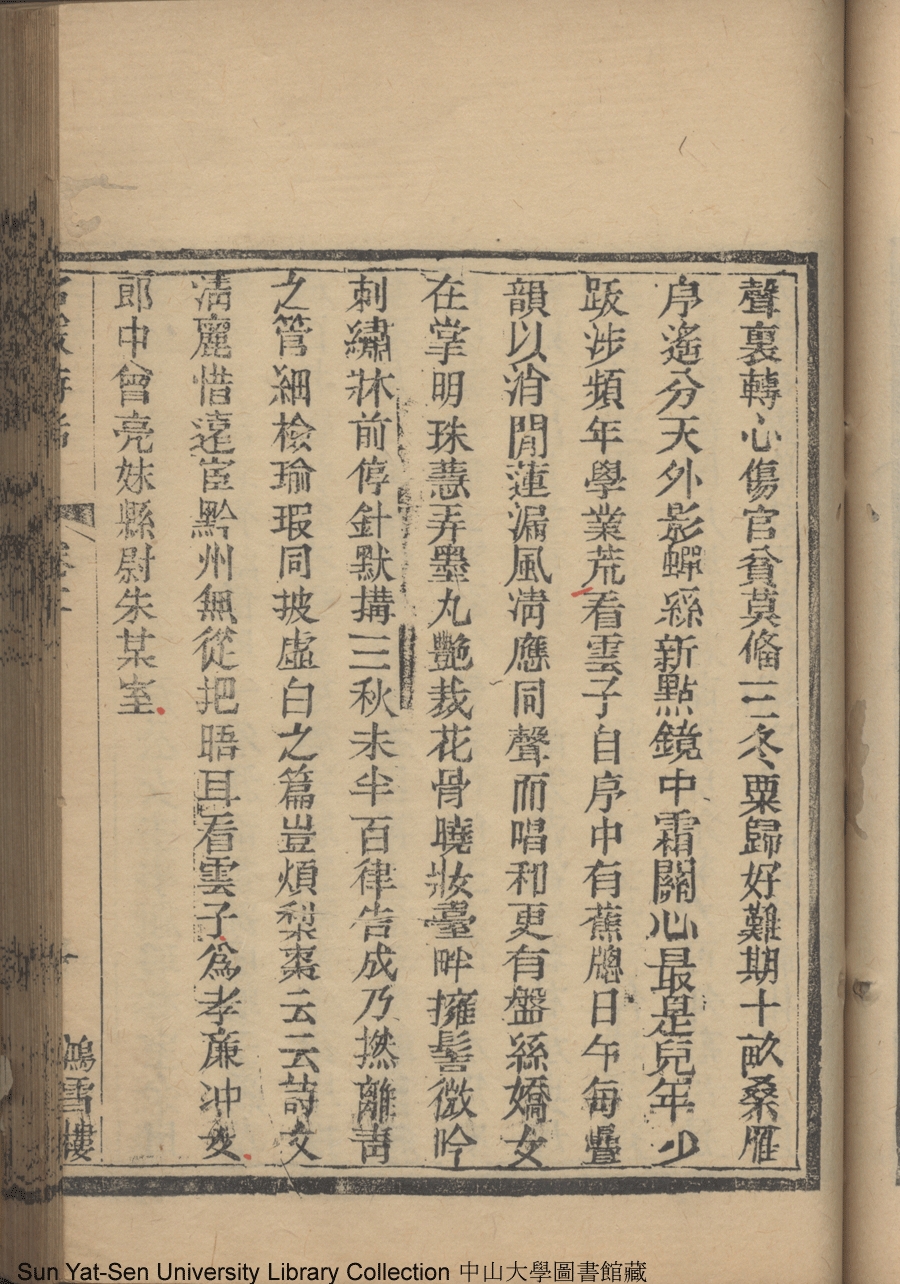 聲裏轉心傷官貧莫俻三冬粟歸好難期十畝桑雁
序遙分天外影蟬綠新點鏡中霜關心最是兒年少
跋涉頻年學業荒看雲子自序中有蕉牕日午每疊
韻以消閒蓮漏風淸應同聲而唱和更有盤絲嬌女
在掌明珠慧弄墨丸艷裁花骨曉妝臺畔擁髻微吟
刺繡牀前停針默搆三秋未半百律告成乃撚離靑
之管細檢瑜瑕同披虛白之篇豈煩梨棗云云詩文
淸麗惜遠宦黔州無從把晤耳看雲子爲孝廉冲女
郎中曾亮妹縣尉朱某室
名媛詩話
鴻雪樓
Sun Yat-Sen University Library Collection 中山大學圖書館藏